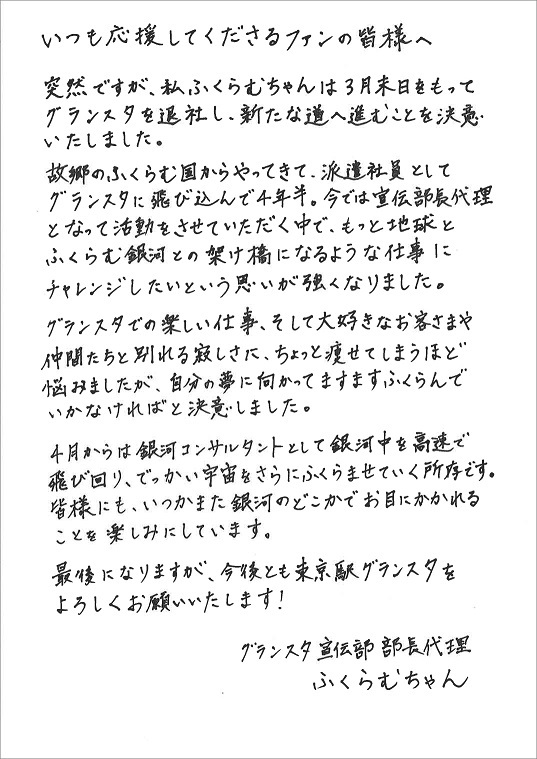 いつも応援してくださるファンの皆様へ
突然ですが、私ふくらむちゃんは3月末日をもって
グランスタを退社し、新たな道へ進むことを決意
いたしました。
故郷のふくらむ国からやってきて、派遣社員として
グランスタに飛び込んで4年半。今では宣伝部長代理
となって活動をさせていただく中で、もっと地球と
ふくらむ銀河との架け橋になるような仕事に
チャレンジしたいという思いが強くなりました。
グランスタでの楽しい仕事、そして大好きなお客さまや
仲間たちと別れる寂しさに、ちょっと痩せてしまうほど
悩みましたが、自分の夢に向かってますますふくらんで
いかなければと決意しました。
4月からは銀河コンサルタントとして銀河中を高速で
飛び回り、でっかい宇宙をさらにふくらませていく所存です。
皆様にも、いつかまた銀河のどこかでお目にかかれる
ことを楽しみにしています。
最後になりますが、今後とも東京駅グランスタを
よろしくお願いいたします!
グランスタ宣伝部 部長代理
ふくらむちゃん